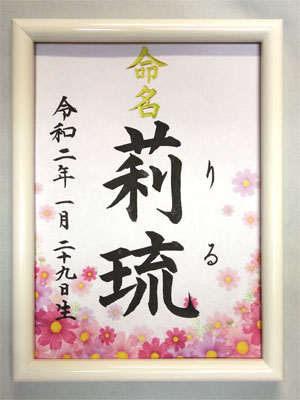 命名
りる
莉琉
令和二年一月二十九日生